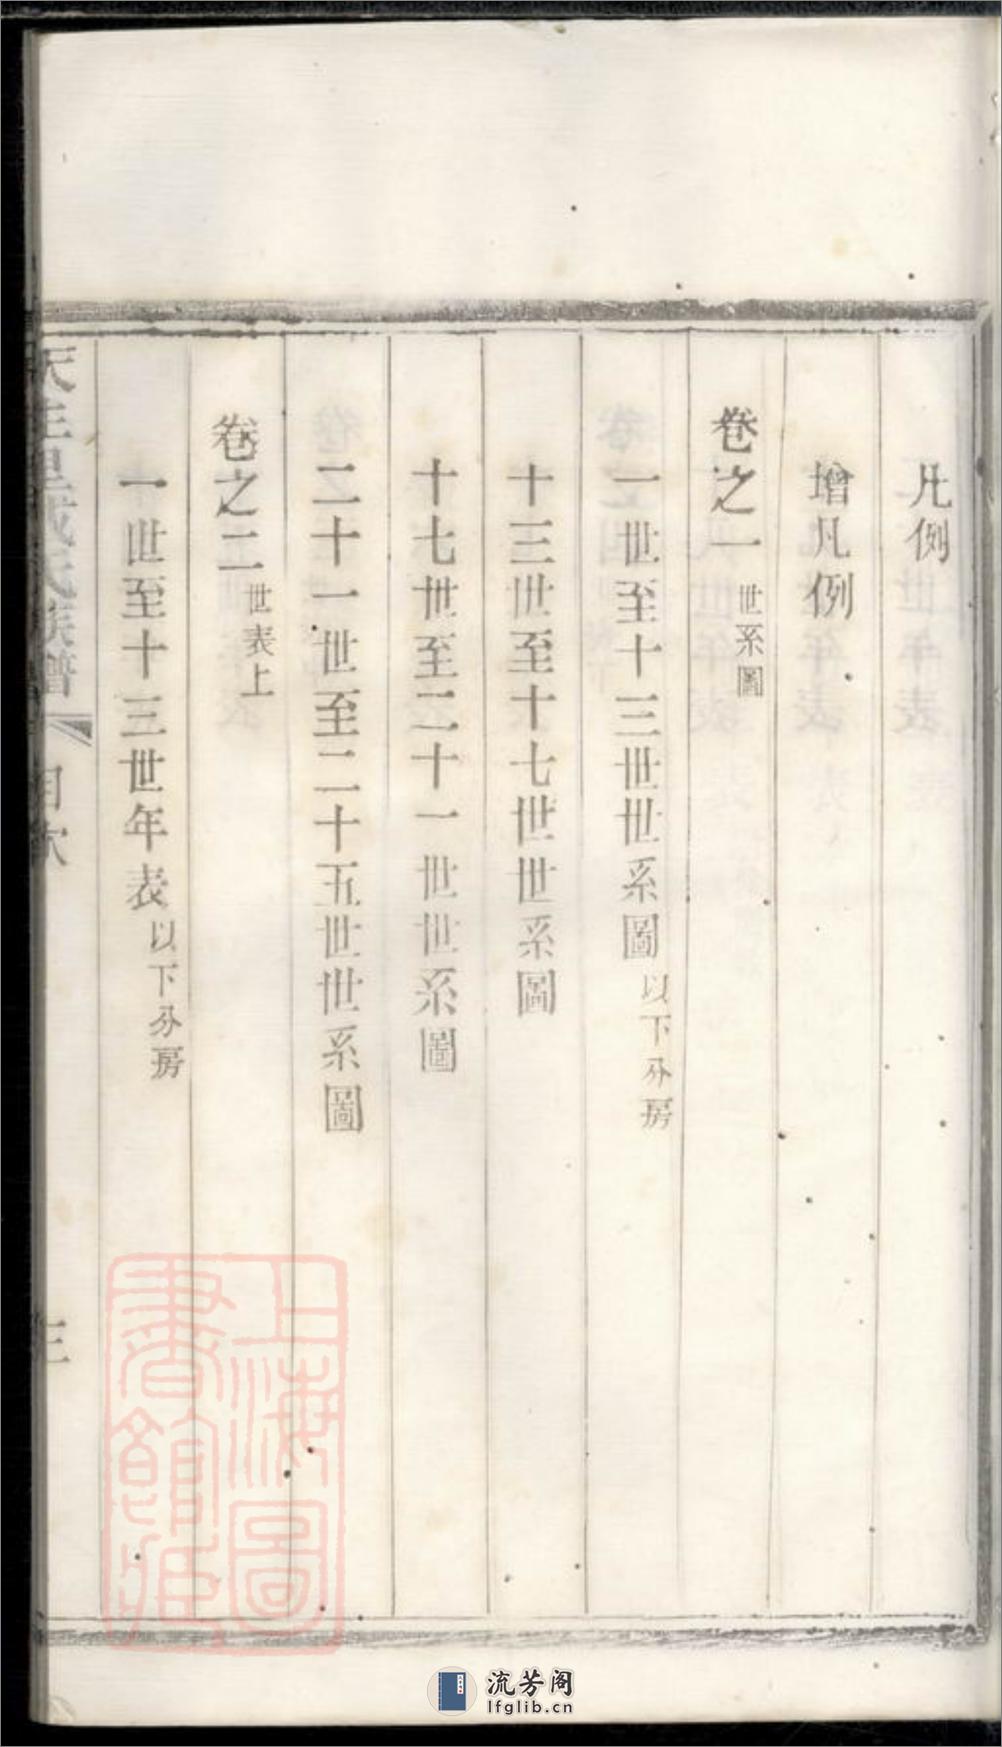 凡例
增凡例
卷之一 世系圖
一世至十三世世系圖 以下分房
十三世至十七世世系圖
十七世至二十一世世系圖
二十一世至二十五世世系圖
卷之二 世表上
一世至十三世年表 以下分房
氏族譜 目次 三
上海圖書館藏
流芳阁
lfglib.cn